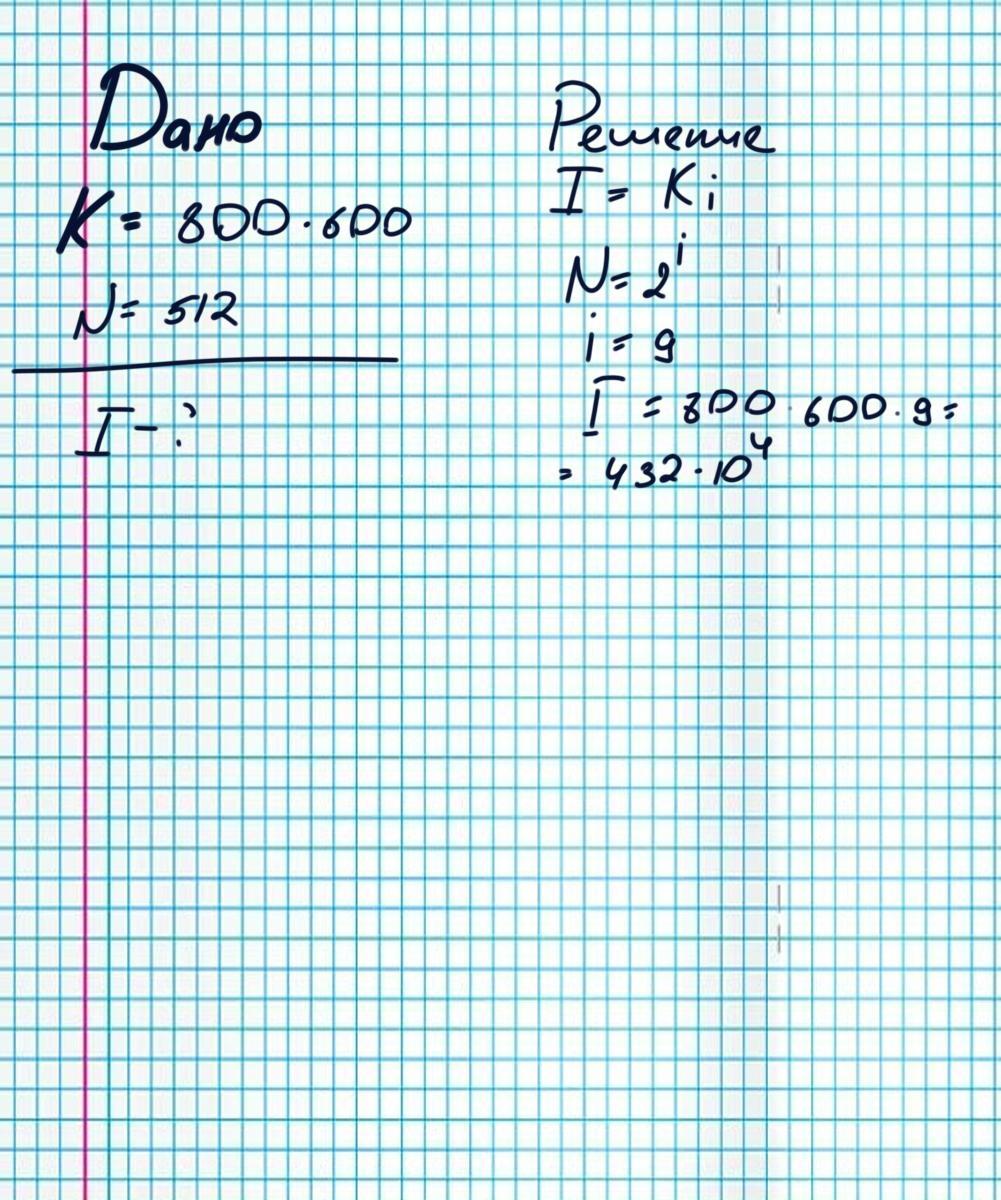 Дано
K = 800·600
N = 512
I - ?
Решение
I = Ki
N = 2^i
i = 9
I = 800·600·9 =
= 432·10^4